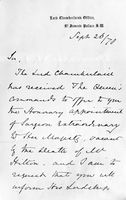 Lord Chamberlain's Office,
St James's Palace S.W.
Sept 26/78
Sir,
The Lord Chamberlain
has received The Queen's
commands to offer to you
the Honorary appointment
of Surgeon Extraordinary
to Her Majesty, vacant
by the death of Mr
Hilton, and I am to
request that you will
inform His Lordship